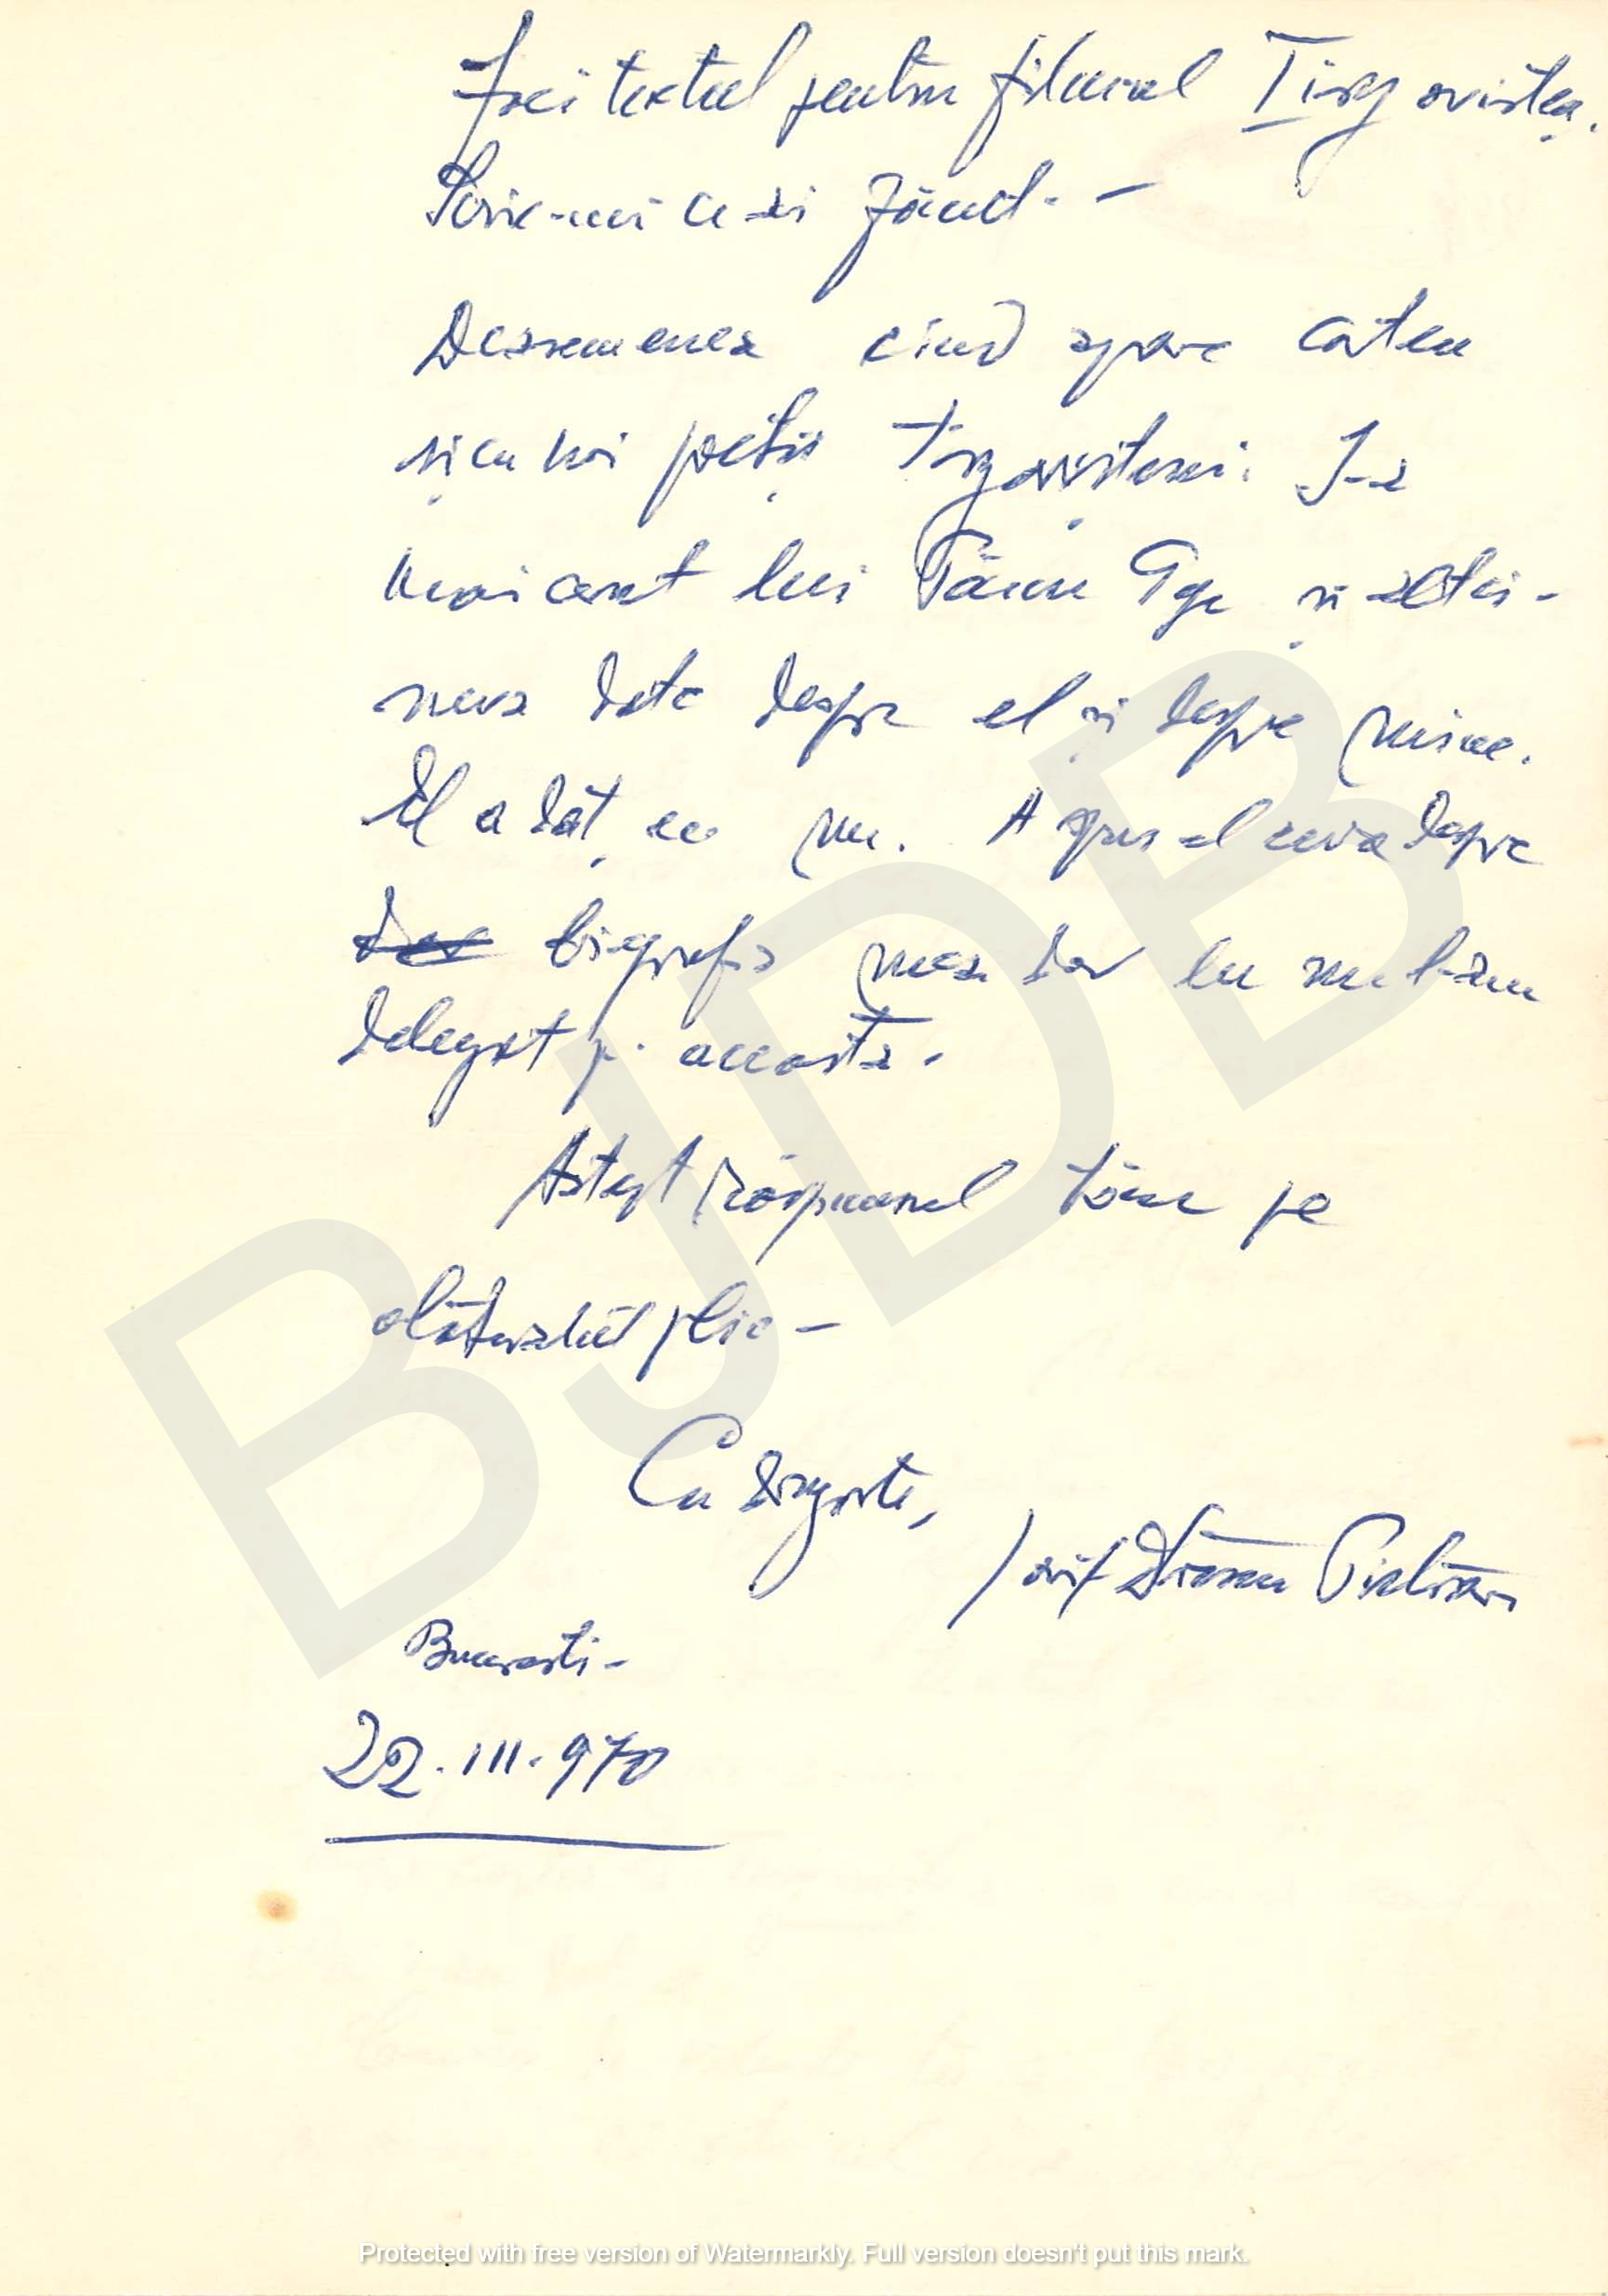 faci textul pentru filmul Tîrgoviștea.
Scrie-mi ce-ai făcut. -
Deasemenea cînd apare cartea
și cu noi poeții tîrgovișteni. I-a
mai cerut lui Păun Gge și alti-
neva date despre el și despre mine.
El a dat, eu nu. A spus el ceva despre
biografia mea dar eu nu l-am
delegat p. aceasta.
Aștept răspunsul tău pe
alăturatul plic -
Cu dragoste,
București -
22.III.970
BJDB
Protected with free version of Watermarkly. Full version doesn't put this mark.